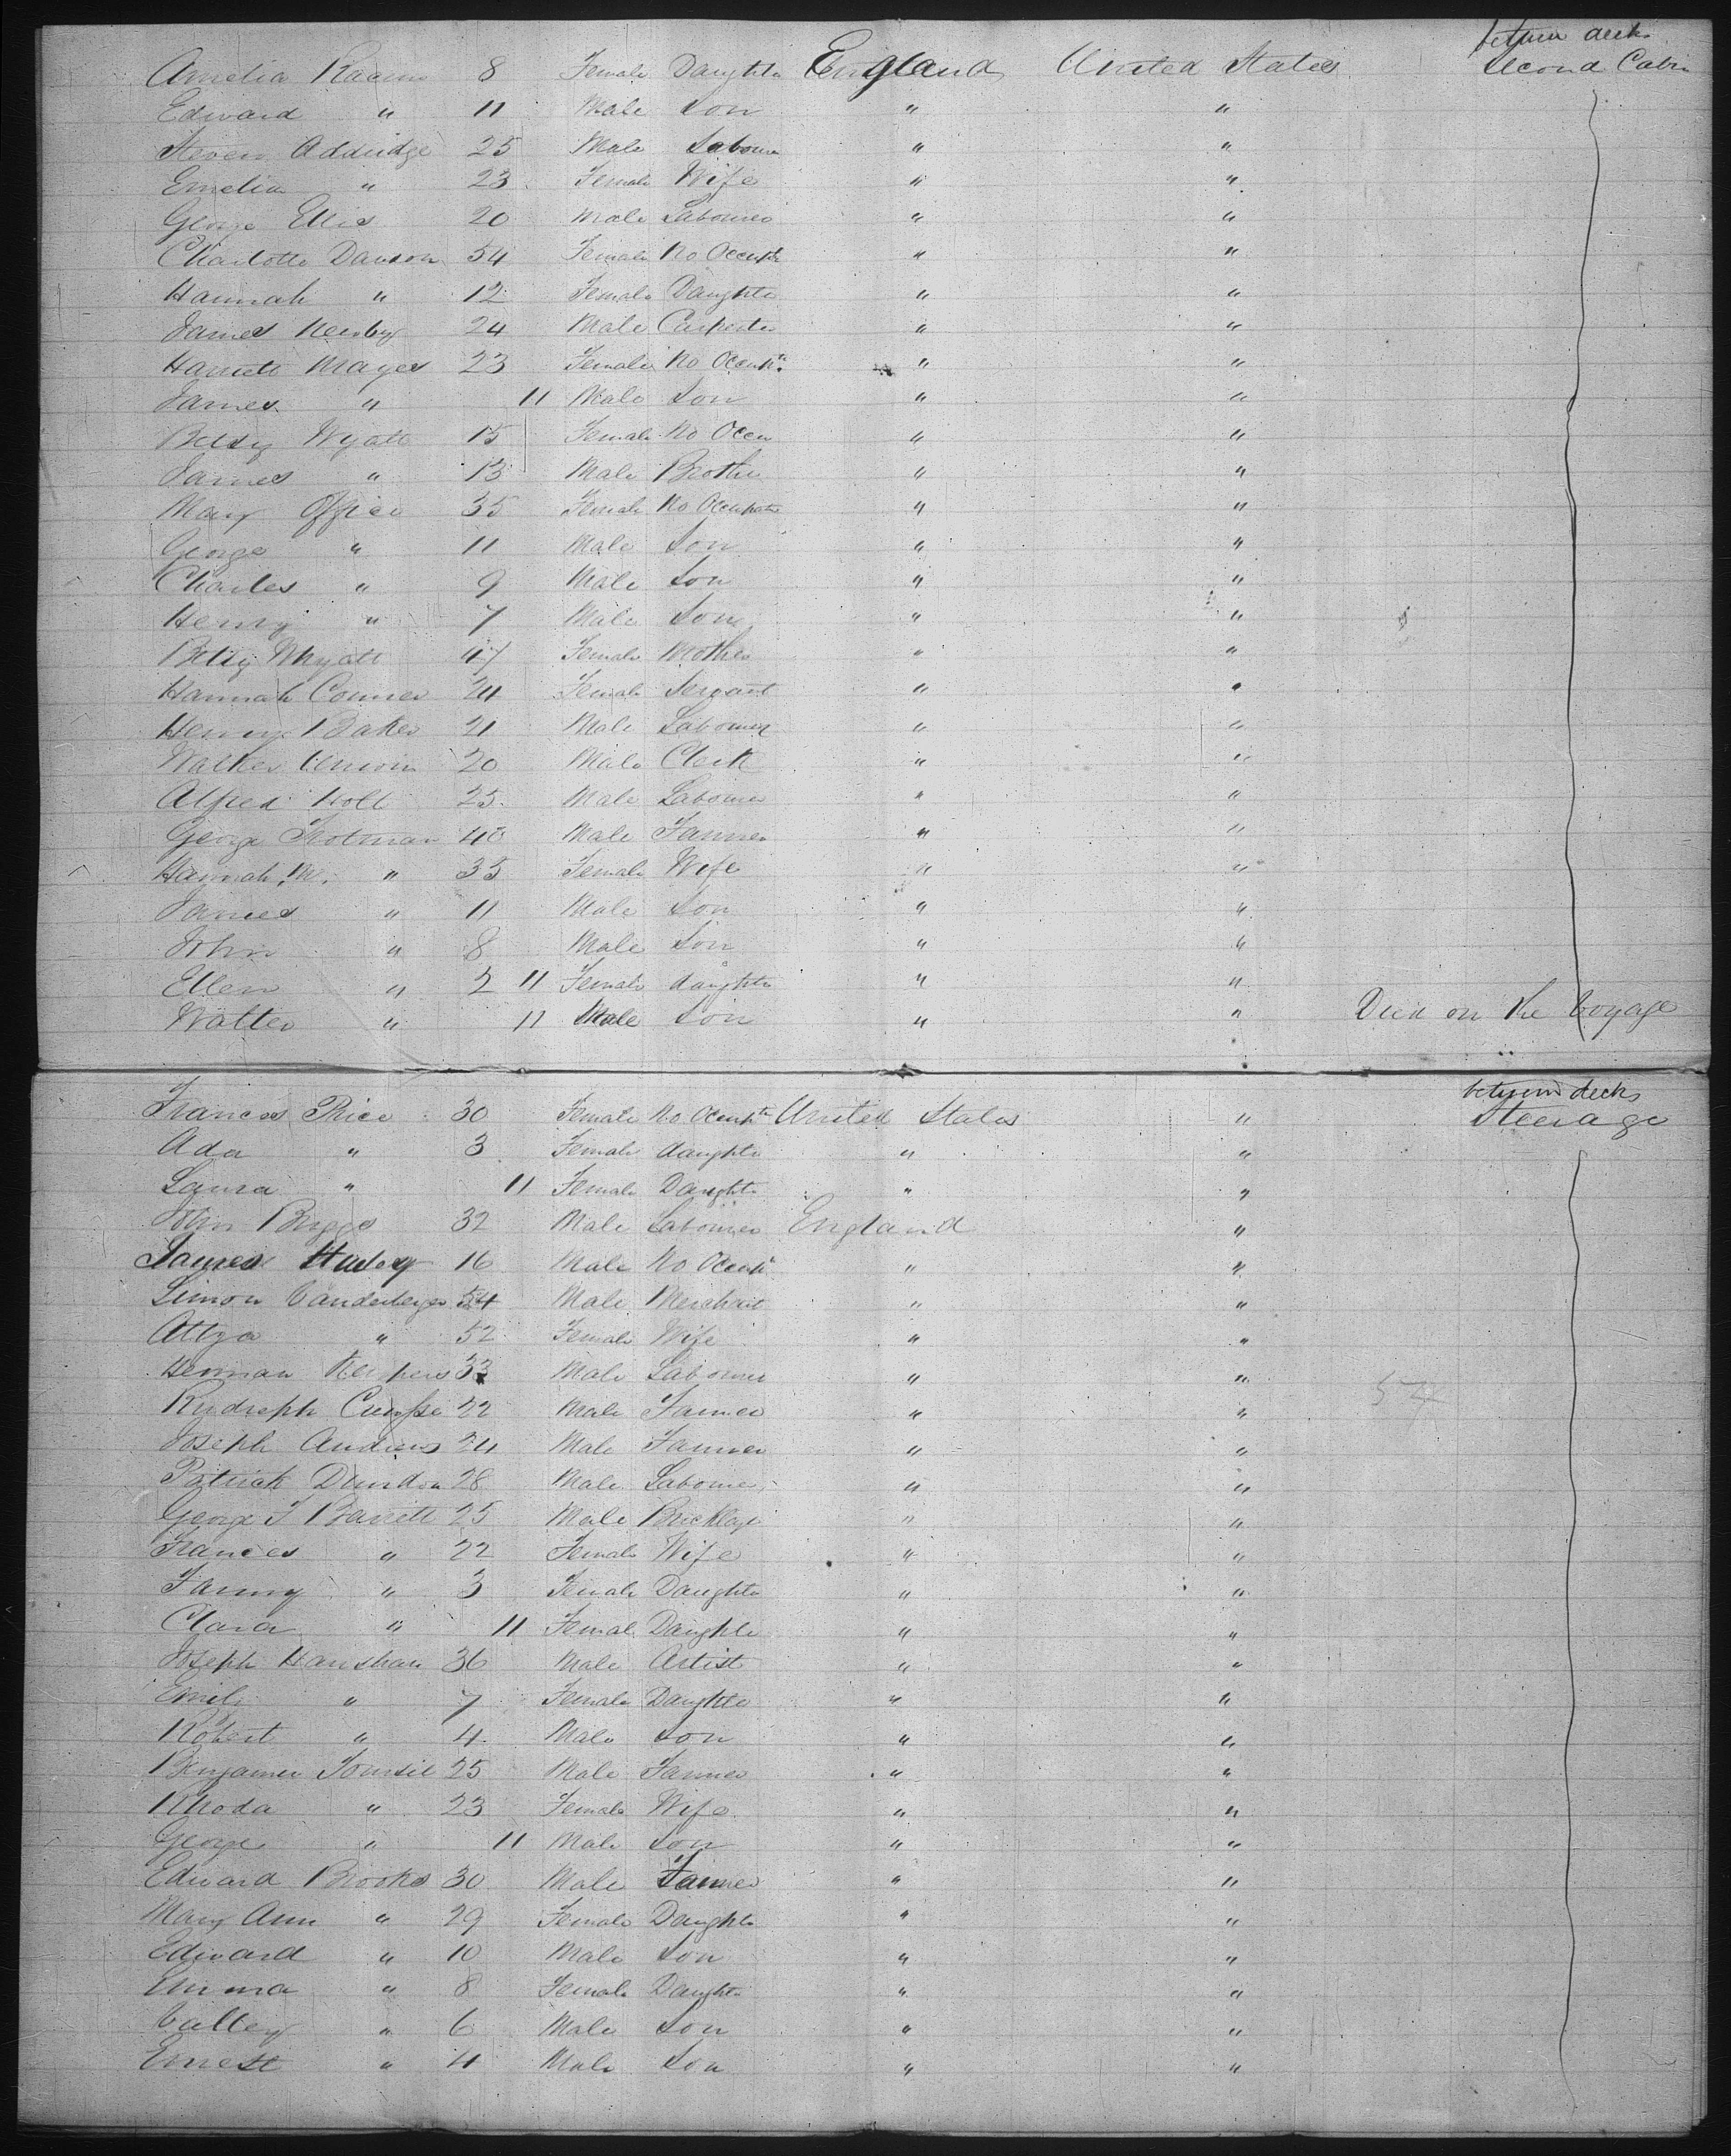 between decks
Amelia 8 Female Daughte England United States Second Cabin
Edward " 11 Male Son " "
Steven Addridge 25 Male Laboure " "
Emelia " 23 Female Wife " "
George Ellis 20 Male Labourer " "
Charlotte Dawson 54 Female No Occupth " "
Hannah " 12 Female Daughte " "
James Newby 24 Male Carpenter " "
Harriett Mayes 23 Female No Occupth " "
James " 11 Male Son " "
Betsy Wyatt 15 Female No Occu " "
James " 13 Male Brothe " "
Mary Office 35 Female No Occupatn " "
George " 11 Male Son " "
Charles " 9 Male Son " "
Henry " 7 Male Son " "
Betsy Whyatt 47 Female Mother " "
Hannah Conner 24 Female Servant " "
Henry Baker 21 Male Labourer " "
Walker Unwin 20 Male Clerk " "
Alfred Holt 25 Male Labourer " "
George Trotman 40 Male Farmer " "
Hannah M. " 35 Female Wife " "
James " 11 Male Son " "
John " 8 Male Son " "
Ellen " 2 11 Female daughte " "
Walter " 11 Male Son " " Died on the Voyage
between decks
Frances Price 30 Female No Occupth United States " Steerage
Ada " 3 Female daughte " "
Laura " 11 Female Daughte " "
John Briggs 32 Male Labourer England "
James 16 Male No Occupt " "
Simon Vanderbergen 54 Male Merchant " "
" 52 Female Wife " "
Herman 33 Male Labourer " "
22 Male Farmer " "
Joseph Andrews 24 Male Farmer " "
Patrick Dundon 28 Male Labourer " "
George T Barrett 25 Male Bricklaye " "
Frances " 22 Female Wife " "
Fanny " 3 Female Daughte " "
Clara " 11 Femal Daughte " "
Joseph Hanshaw 36 Male Artist " "
Emily " 7 Female Daughte " "
Robert " 4 Male Son " "
Benjamin 25 Male Farmer " "
Rhoda " 23 Female Wife " "
George " 11 Male Son " "
Edward Brooks 30 Male Farmer " "
Mary Ann " 29 Female Daughte " "
Edward " 10 Male Son " "
Emma " 8 Female Daughte " "
" 6 Male Son " "
Ernest " 4 Male Son " "